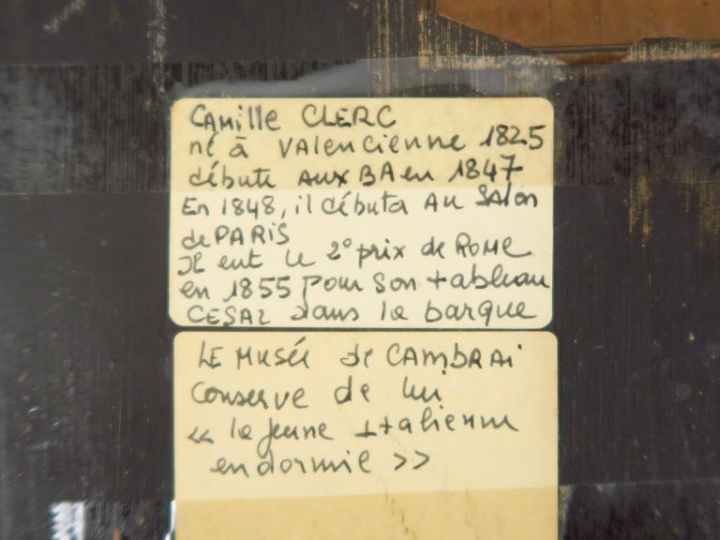 Camille CLERC
né à Valencienne 1825
débute aux BA en 1847
En 1848, il débuta au Salon
de PARIS
Il eut le 2° prix de Rome
en 1855 pour son tableau
CESAR dans la barque
LE Musée de CAMBRAI
conserve de lui
« la jeune Italienne
endormie »